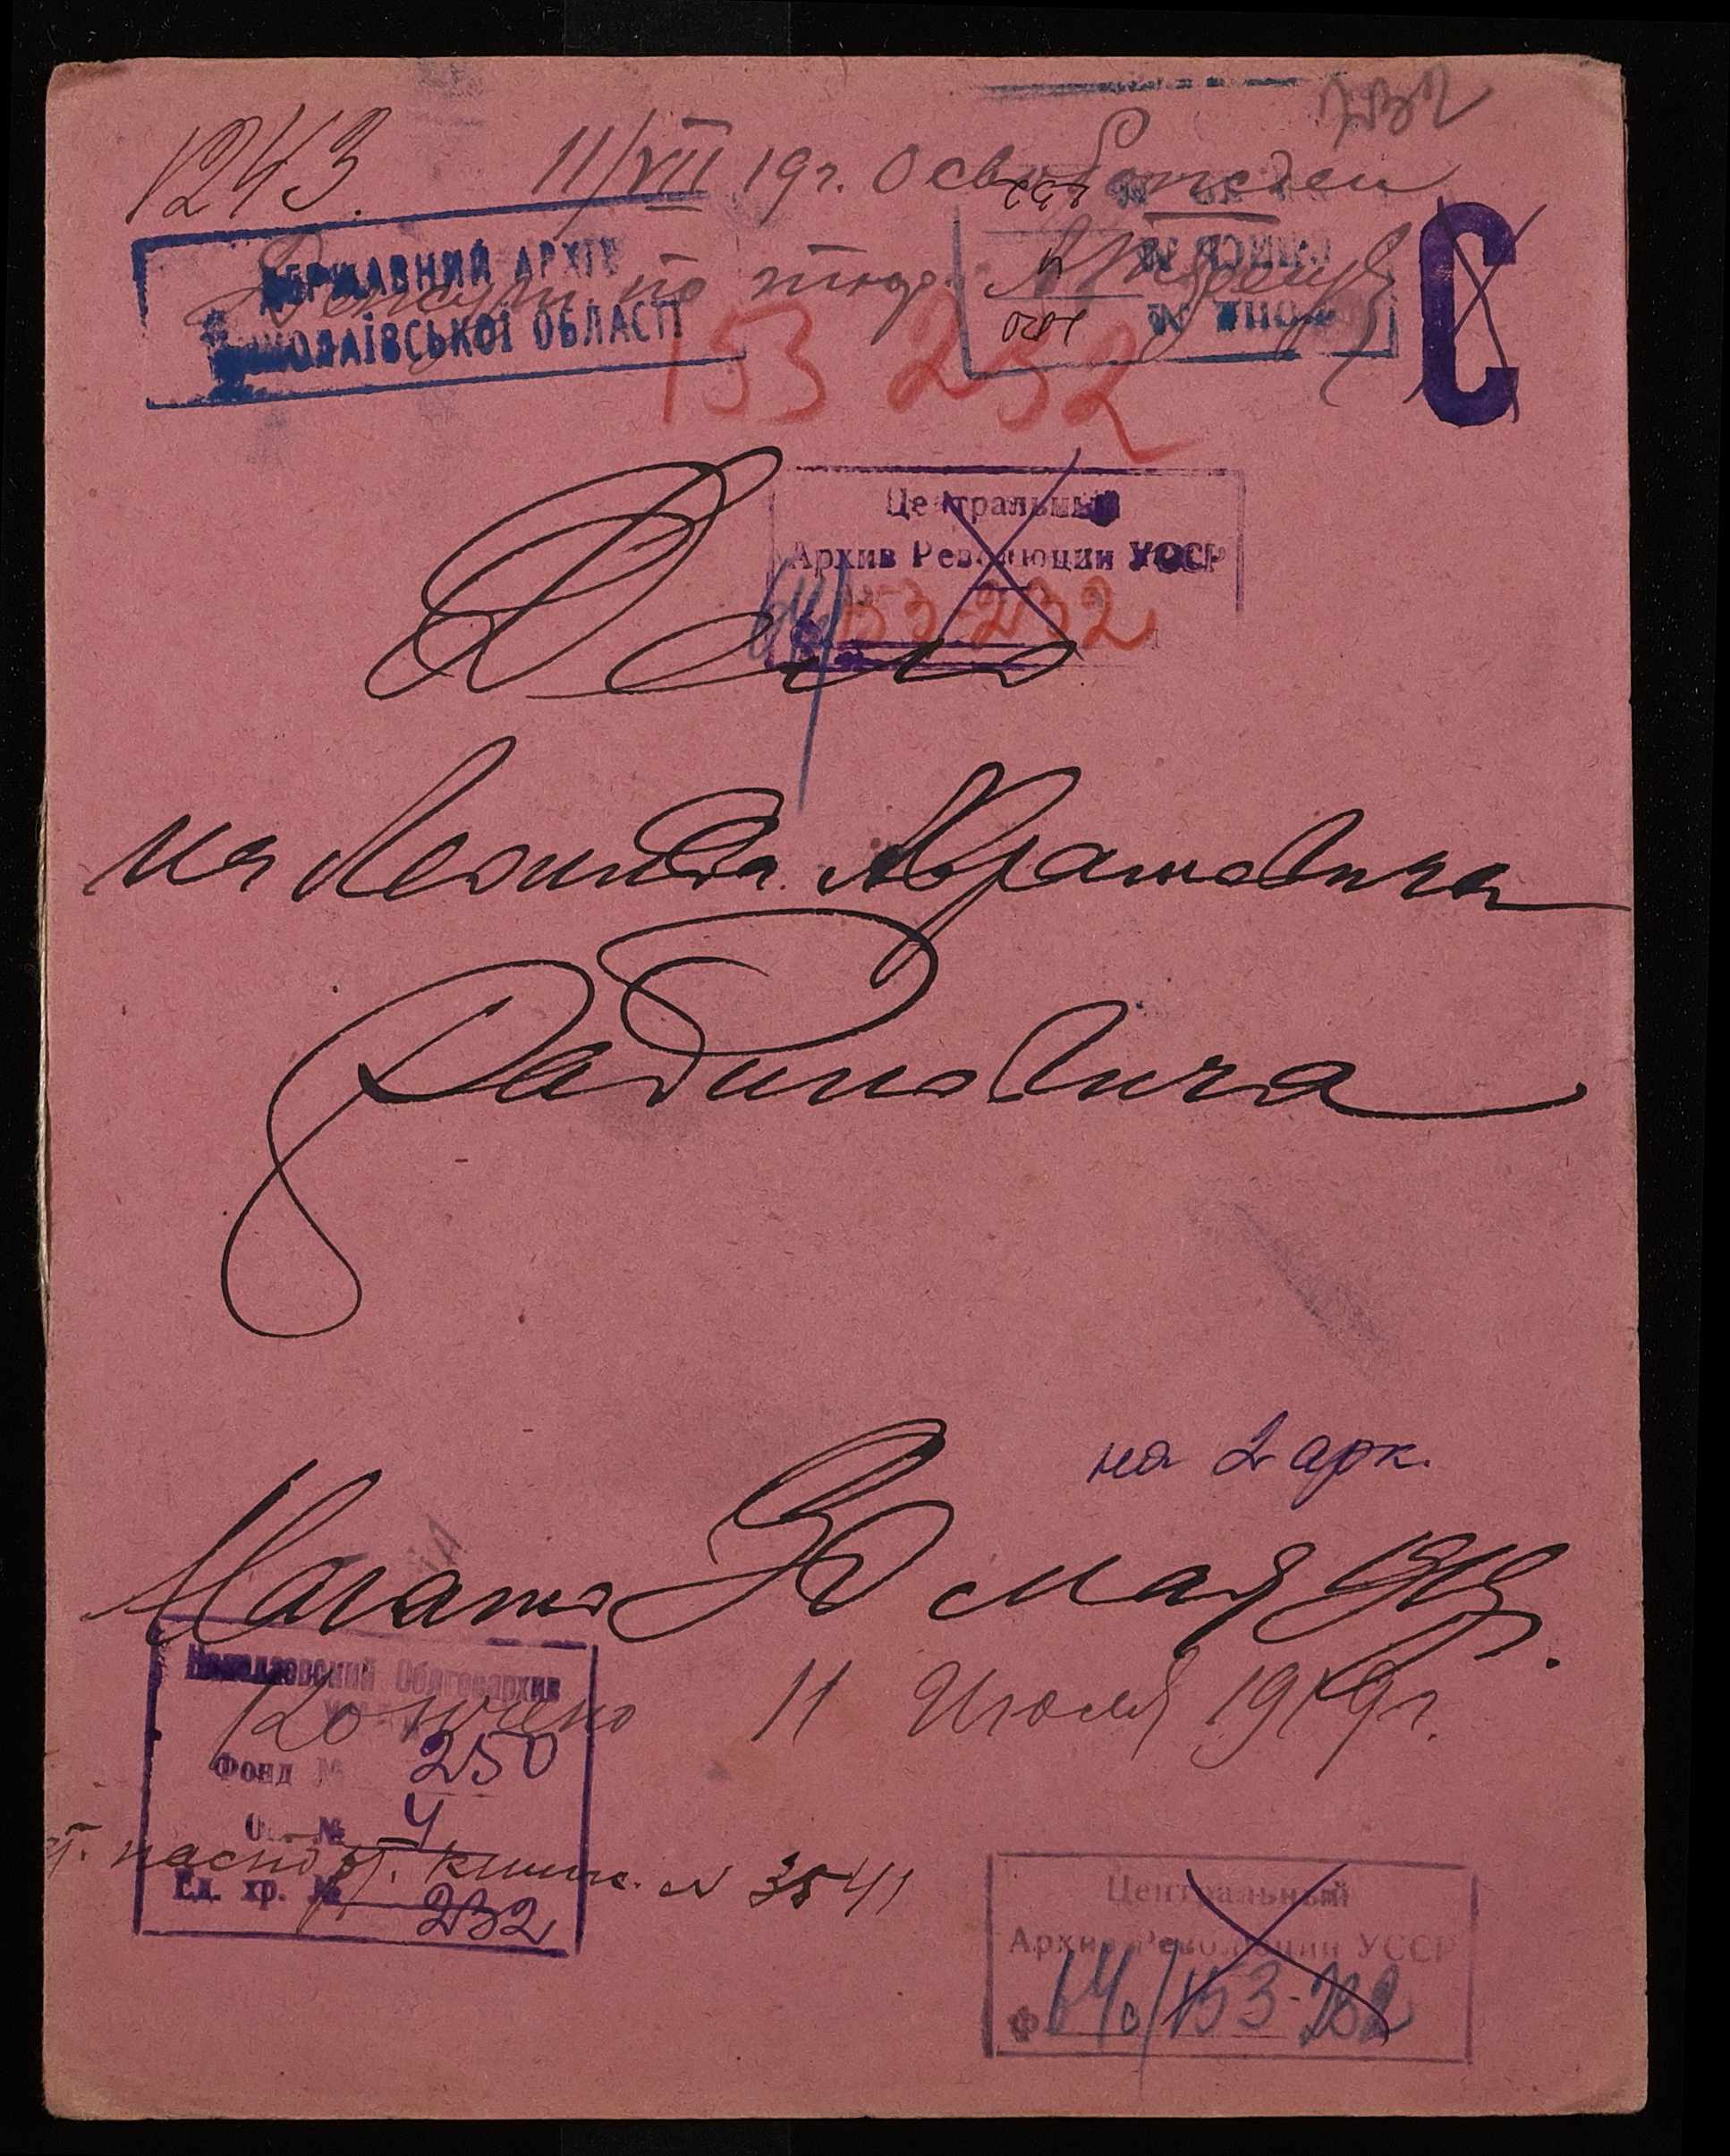 232
1243. 11/VII 19 г. Освобожден
ДЕРЖАВНИЙ АРХІВ
МИКОЛАЇВСЬКОЇ ОБЛАСТІ
по тюр.
С
153 232
Дело
Центральный
Архив Революции УССР
153-232
на Леонида Абрамовича
Рабиновича
на 2 арк.
Начато 30 мая 1919 г.
Кончено 11 Июля 1919 г.
Николаевский Облгосархив
Фонд № 250
Оп. № 4
Ед. хр. № 232
книж. N 3541
Центральный
Архив Революции УССР
Ф 153-232